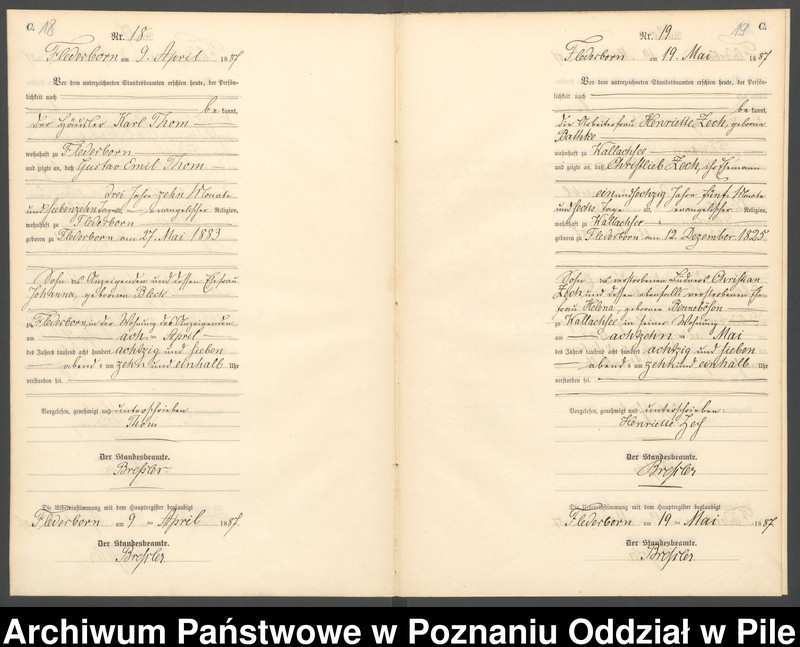 C. 18
Nr. 18
Flederborn am 9. April 1887
Vor dem unterzeichneten Standesbeamten erschien heute, der Persön-
lichkeit nach
bekannt,
der Häusler Karl Thom
wohnhaft zu Flederborn
und zeigte an, daß Gustav Emil Thom
drei Jahre zehn Monate
und siebenzehn Tage alt, evangelischer Religion,
wohnhaft zu Flederborn
geboren zu Flederborn am 27. Mai 1883
Sohn des Anzeigenden und dessen Ehefrau
Johanna, geborenen Block
zu Flederborn in der Wohnung des Anzeigenden
am acht ten April
des Jahres tausend acht hundert achtzig und sieben
abends um zehn und einhalb Uhr
verstorben sei.
Vorgelesen, genehmigt und unterschrieben
Thom
Der Standesbeamte.
Breßler
Die Uebereinstimmung mit dem Hauptregister beglaubigt
Flederborn am 9 ten April 1887
Der Standesbeamte.
Breßler
19 C.
Nr. 19
Flederborn am 19. Mai 1887
Vor dem unterzeichneten Standesbeamten erschien heute, der Persön-
lichkeit nach
bekannt,
die Arbeiterfrau Henriette Zech, geborene
Bathke
wohnhaft zu Wallachsee
und zeigte an, daß Christlieb Zech, ihr Ehemann
einundsechzig Jahre fünf Monate
und sechs Tage alt, evangelischer Religion,
wohnhaft zu Wallachsee
geboren zu Flederborn am 12. Dezember 1825
Sohn des verstorbenen Büdners Christian
Zech und dessen ebenfalls verstorbenen Ehe
frau Helena, geborene
zu Wallachsee in seiner Wohnung
am achtzehn ten Mai
des Jahres tausend acht hundert achtzig und sieben
abends um zehn und einhalb Uhr
verstorben sei.
Vorgelesen, genehmigt und unterschrieben.
Henriette Zech
Der Standesbeamte.
Breßler
Die Uebereinstimmung mit dem Hauptregister beglaubigt
Flederborn am 19 ten Mai 1887
Der Standesbeamte.
Breßler
Archiwum Państwowe w Poznaniu Oddział w Pile